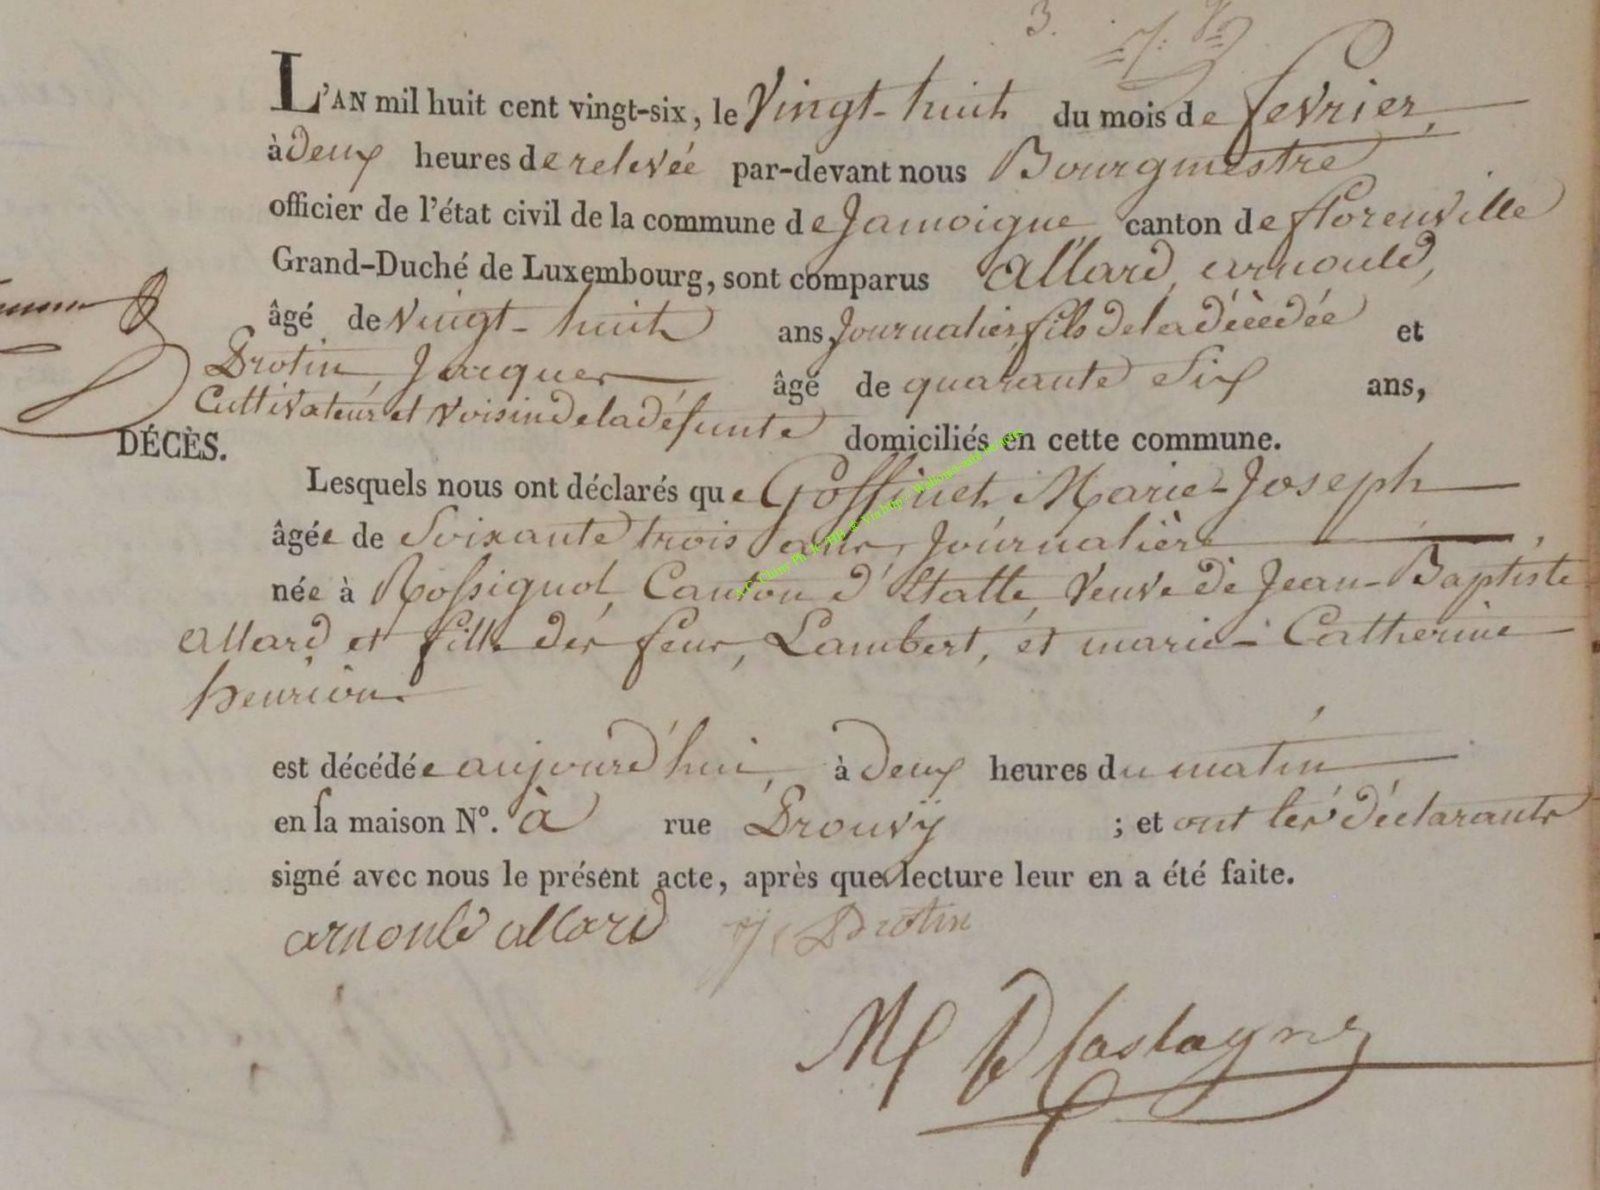 3.
L'AN mil huit cent vingt-six, le Vingt-huit du mois de fevrier,
à deux heures de relevée par-devant nous Bourgmestre
officier de l'état civil de la commune de Jamoigne canton de florenville
Grand-Duché de Luxembourg, sont comparus allard, arnould,
âgé de vingt-huit ans Journalier, fils de la décédée et
Drotin, Jacques âgé de quarante Six ans,
Cultivateur et voisin de la défunte domiciliés en cette commune.
DÉCÈS.
Lesquels nous ont déclarés que Goffinet Marie-Joseph
âgée de Soixante trois ans, Journalière
née à Rossignol, Canton d'Etalle, Veuve de Jean-Baptiste
allard et fille des feus, Lambert, et marie-Catherine
henrion.
est décédée aujourd'hui, à deux heures du matin
en la maison N°. à rue Prouvÿ ; et ont les déclarants
signé avec nous le présent acte, après que lecture leur en a été faite.
arnould allard J Drotin